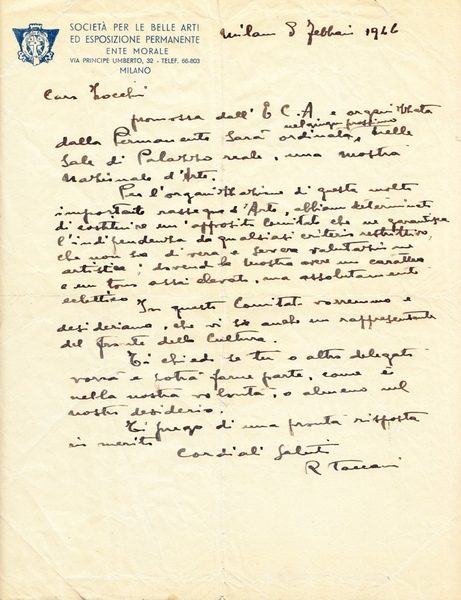 SOCIETÀ PER LE BELLE ARTI
ED ESPOSIZIONE PERMANENTE
ENTE MORALE
VIA PRINCIPE UMBERTO, 32 - TELEF. 66-803
MILANO
Milano 8 Febbraio 1946
Caro
promossa dall'E.C.A e organizzata
dalla Permanente sarà ordinata, nelle
nel giugno prossimo
Sale di Palazzo reale, una mostra
Nazionale d'Arte.
Per l'organizzazione di questa molto
importante rassegna d'Arte, abbiamo determinato
di costituire un apposito Comitato che ne garantisca
l'indipendenza da qualsiasi criterio restrittivo,
che non sia di vera e severa valutazione
artistica; dovendo la Mostra avere un carattere
e un tono assai elevato, ma assolutamente
eclettico.
In questo Comitato vorremmo e
desideriamo, che vi sia anche un rappresentante
del fronte della Cultura.
Ti chiedo se tu o altro delegato
vorrà e potrà farne parte, come è
nella nostra volontà, o almeno nel
nostro desiderio.
Ti prego di una pronta risposta
in merito
Cordiali saluti
R. Taccani